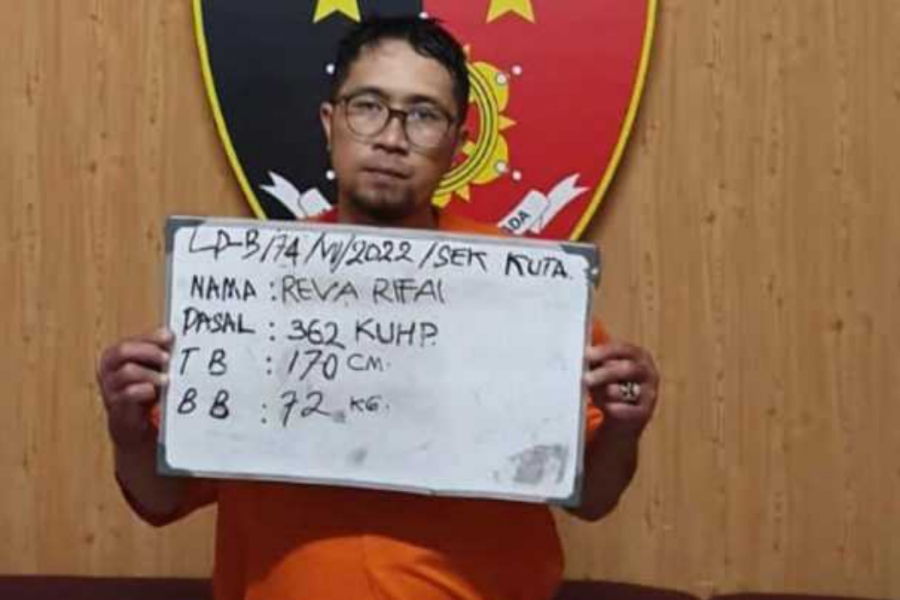 LP-B/74/VI/2022/SEK KUTA
NAMA : REVA RIFAI
PASAL : 362 KUHP.
TB : 170 CM.
BB : 72 KG.